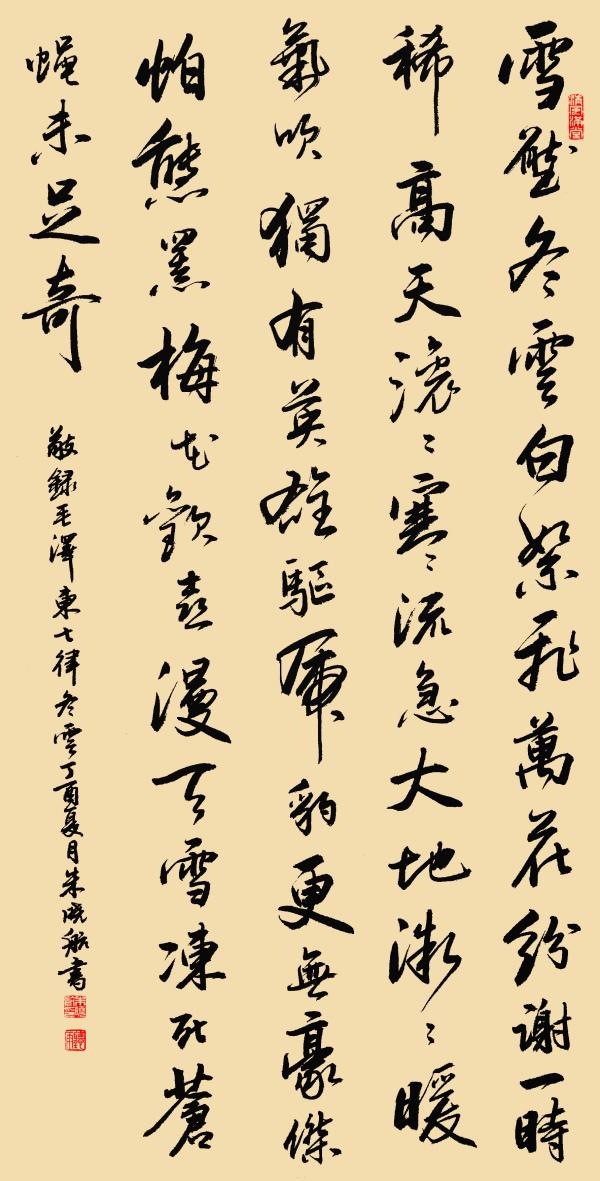 雪壓冬雲白絮飛萬花紛謝一時
稀高天滾〻寒流急大地微〻暖
氣吹獨有英雄驅虎豹更無豪傑
怕熊羆梅花歡喜漫天雪凍死蒼
蠅未足奇
敬録毛澤東七律冬雲丁酉夏月朱曉航書